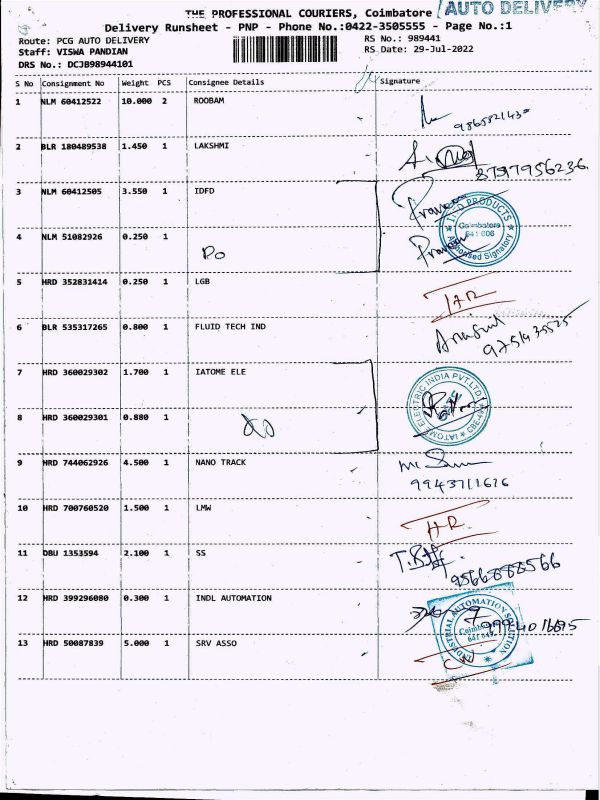 THE PROFESSIONAL COURIERS, Coimbatore
AUTO DELIVERY
Delivery Runsheet - PNP - Phone No.:0422-3505555 - Page No.:1
Route: PCG AUTO DELIVERY RS No.: 989441
Staff: VISWA PANDIAN RS Date: 29-Jul-2022
DRS No.: DCJB98944101
S No Consignment No Weight PCS Consignee Details Signature
1 NLM 60412522 10.000 2 ROOBAM
2 BLR 180489538 1.450 1 LAKSHMI
8797956236
3 NLM 60412505 3.550 1 IDFD
4 NLM 51082926 0.250 1
Do
PRODUCTS
Coimbatore
641 006
Authorised Signatory
5 HRD 352831414 0.250 1 LGB
HR
6 BLR 535317265 0.800 1 FLUID TECH IND
9751435525
7 HRD 360029302 1.700 1 IATOME ELE
8 HRD 360029301 0.880 1
Do
IATOME ELECTRIC INDIA PVT.LTD
9 HRD 744062926 4.500 1 NANO TRACK
9943711626
10 HRD 700760520 1.500 1 LMW
HR
11 DBU 1353594 2.100 1 SS
9566888566
12 HRD 399296080 0.300 1 INDL AUTOMATION
INDUSTRIAL AUTOMATION SOLUTION
Coimbatore
13 HRD 50087839 5.000 1 SRV ASSO